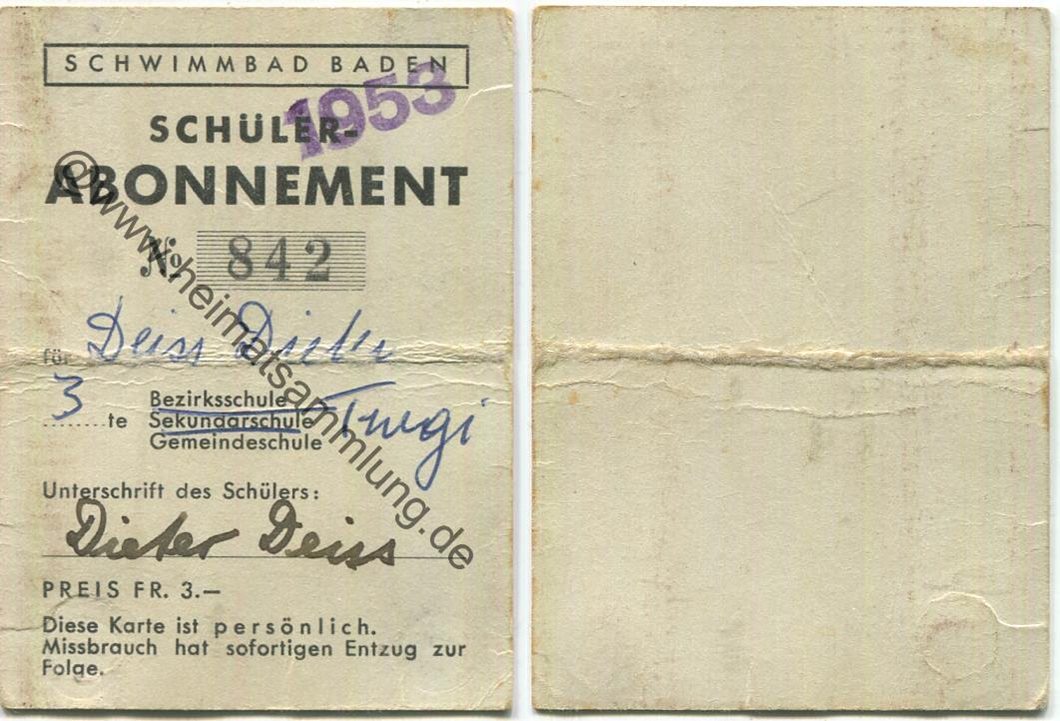 SCHWIMMBAD BADEN
1953
SCHÜLER-
ABONNEMENT
No. 842
für Deiss Dieter
3 te Bezirksschule
Sekundarschule Turgi
Gemeindeschule
Unterschrift des Schülers:
Dieter Deiss
PREIS FR. 3.—
Diese Karte ist persönlich.
Missbrauch hat sofortigen Entzug zur
Folge.
©www.heimatsammlung.de